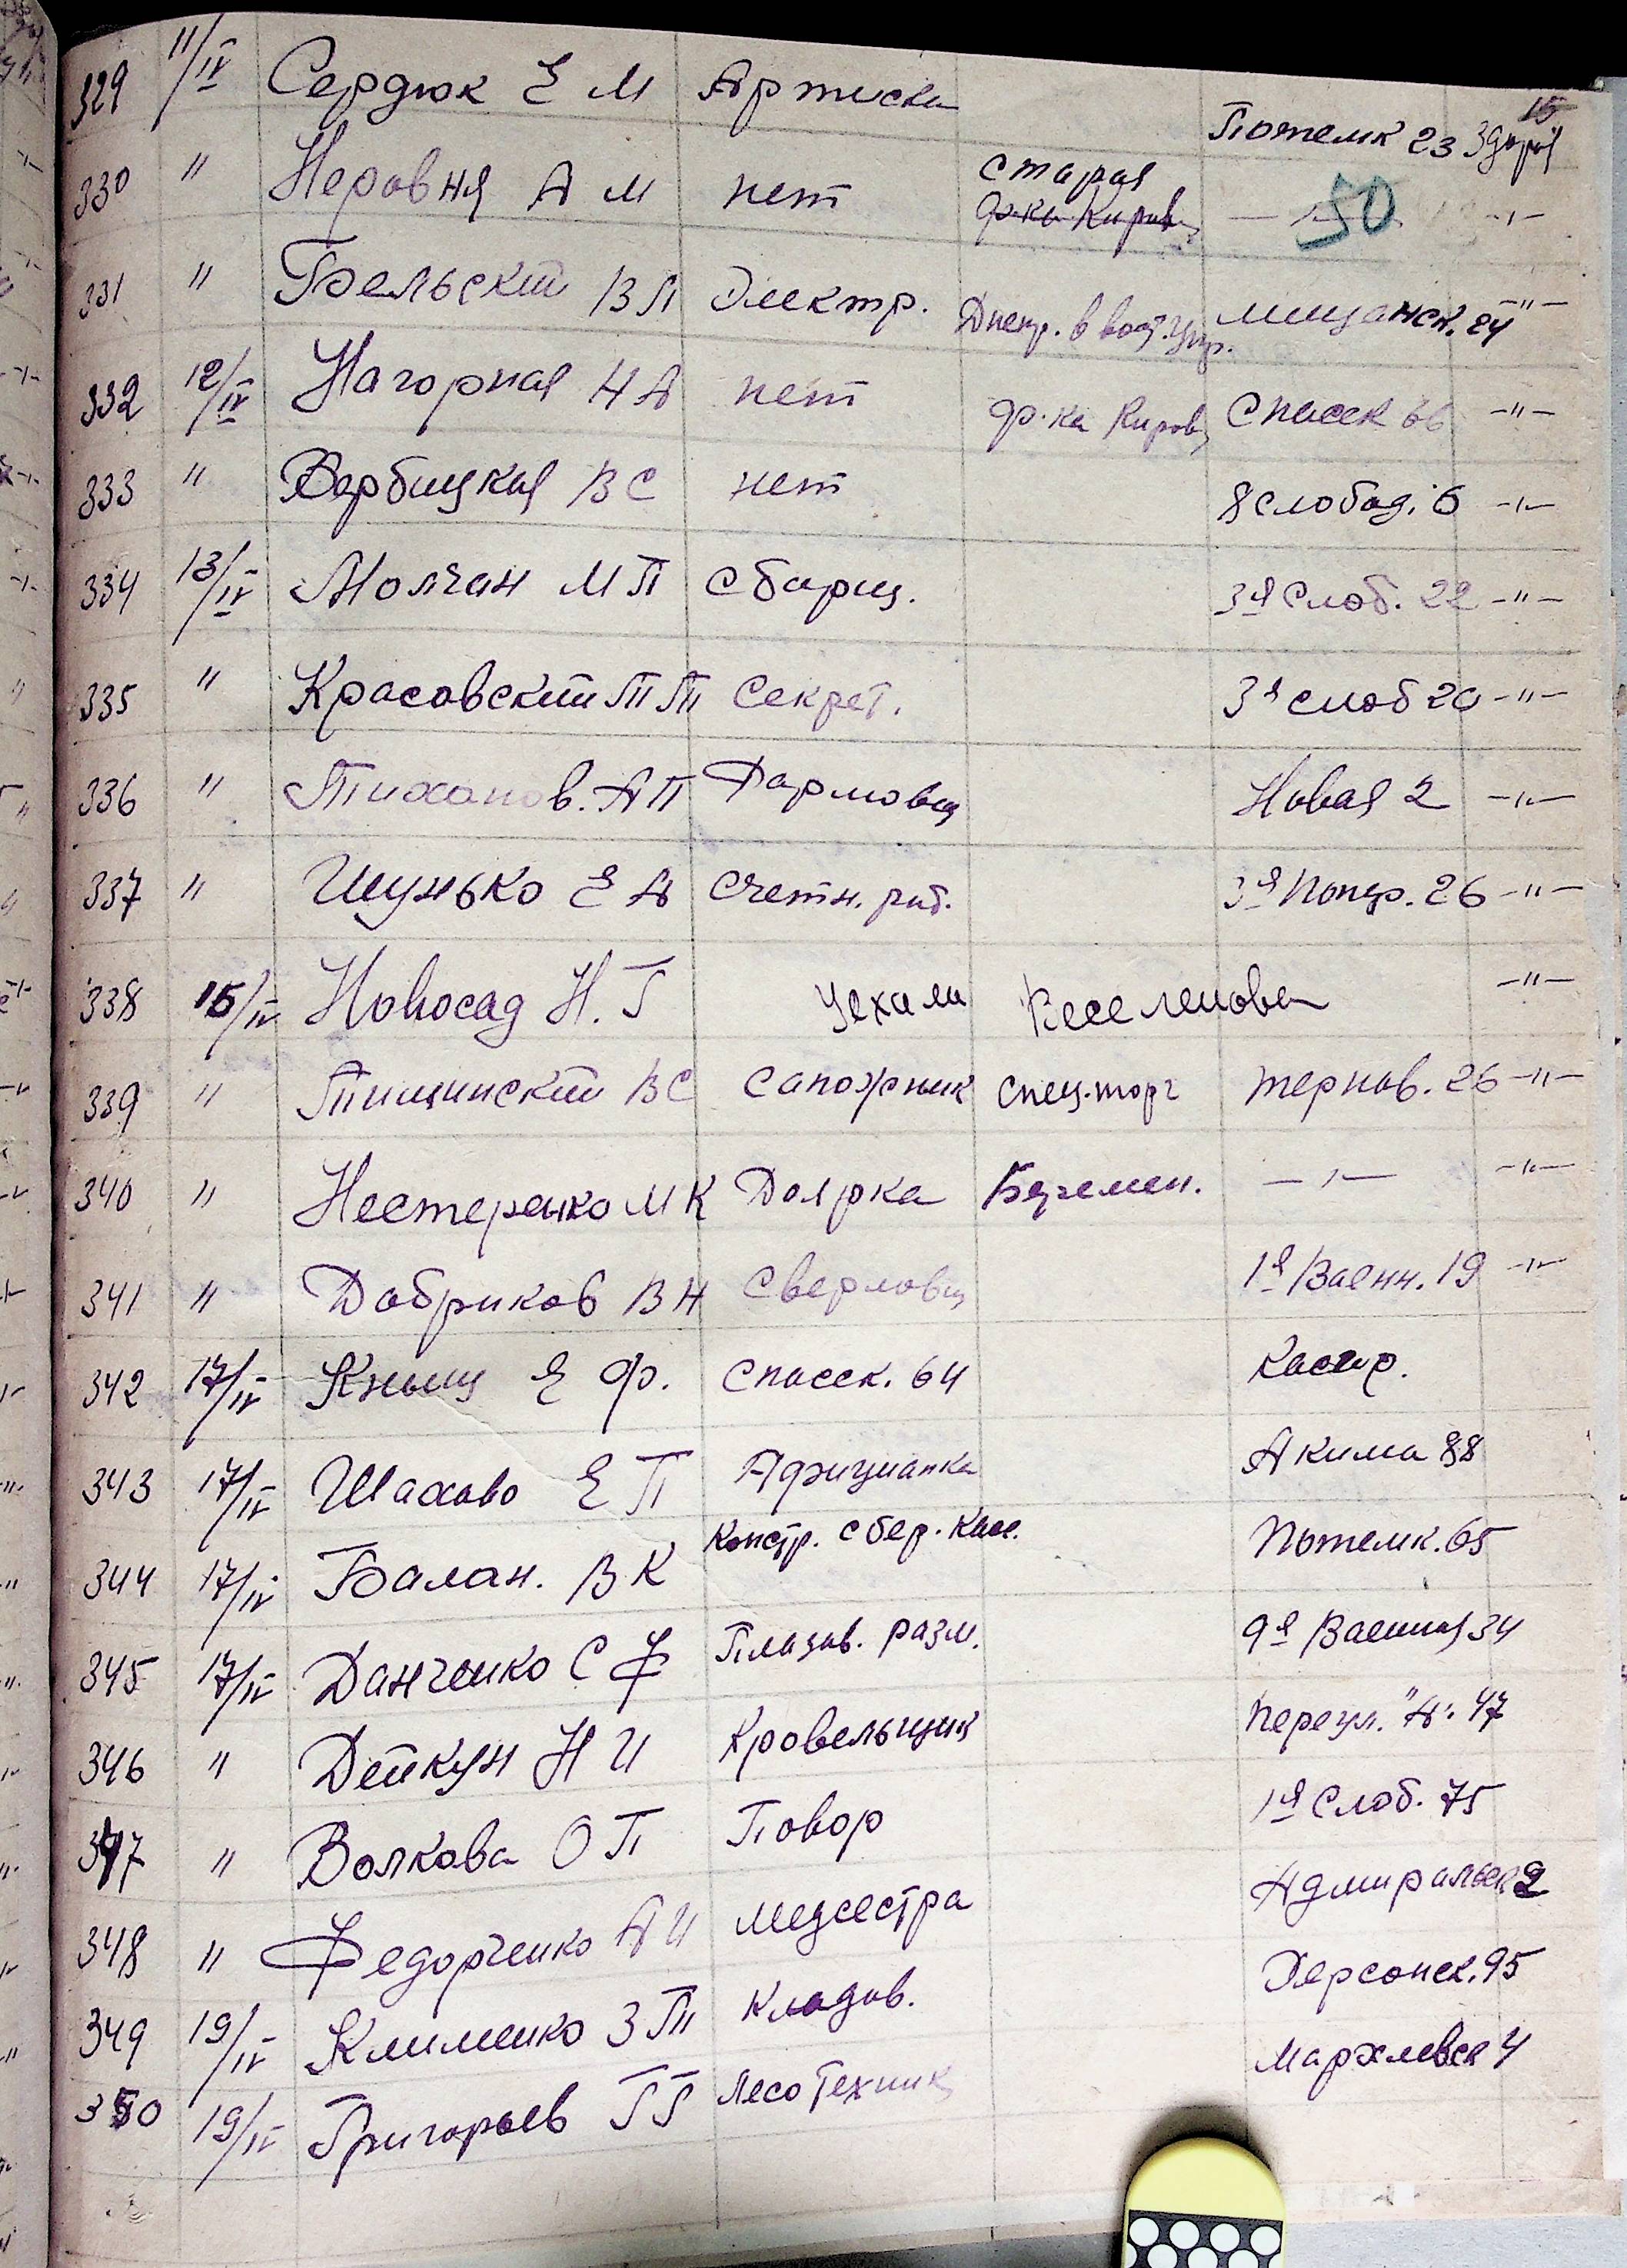 15
329 11/IV Сердюк Е М Артистка Потемк 23 Здоров
330 " Неровня А М нет старая ф-ка Киров — " — 50 — " —
331 " Бельский В П Электр. Днепр. в Мещанск. 24 — " —
332 12/IV Нагорная Н А нет ф-ка Киров Спасск 66 — " —
333 " Вербицкая В С нет 8 слобод. 6 — " —
334 13/IV Молчан М П сборщ. 3я Слоб. 22 — " —
335 " Красовский П П Секрет. 3я слоб 20 — " —
336 " Тихонов. А П Формовщ Новая 2 — " —
337 " Шунько Е А Счетн. раб. 3я Попер. 26 — " —
338 15/IV Новосад Н. Г Уехала Веселенова — " —
339 " Тищинский В С Сапожник Спец.торг Тернов. 26 — " —
340 " Нестеренко М К Доярка Беремен. — " — — " —
341 " Добриков В Н Сверловщ 1я Военн. 19 — " —
342 17/IV Кныш Е Ф. Спасск. 64 Кассир.
343 17/IV Шахово Е П Афицианка Акима 88
344 17/IV Балан. В К Контр. сбер. касс. Потемк. 65
345 17/IV Данченко С Ф Плазов. разм. 9я Военная 34
346 " Дейкун Н И Кровельщик Переул. "А". 47
347 " Волкова О П Повор 1я Слоб. 75
348 " Федорченко А И медсестра Адмиральск 2
349 19/IV Клименко З П Кладов. Херсонск. 95
350 19/IV Григорьев Г Г Лесотехник Мархлевск 4